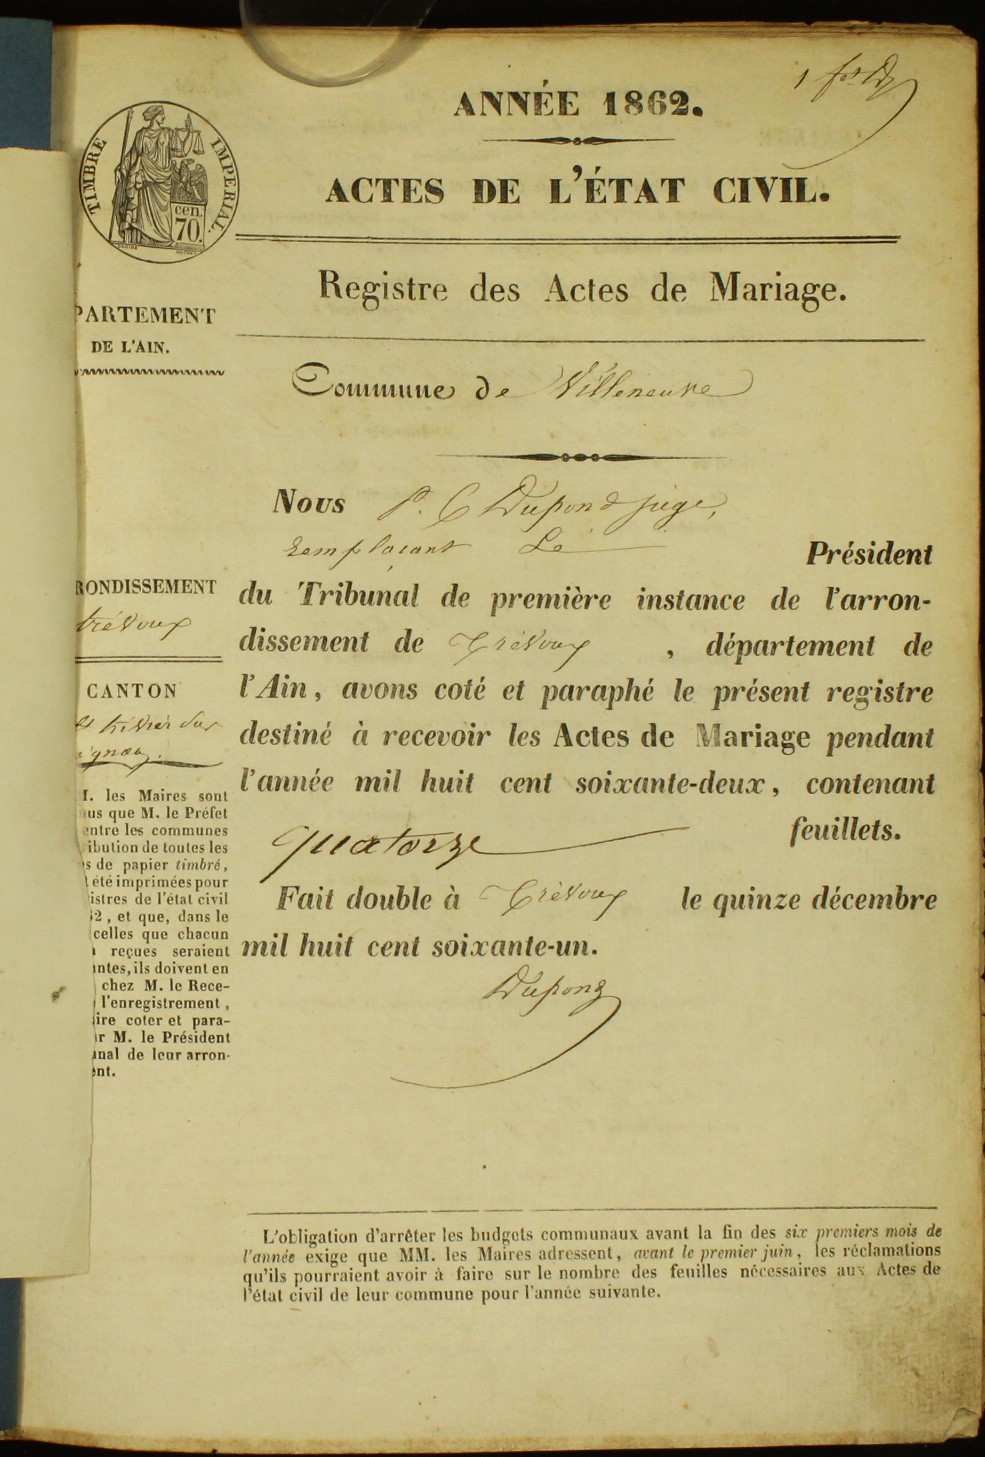 1
ANNÉE 1862.
TIMBRE IMPERIAL.
cen.
70.
ACTES DE L'ÉTAT CIVIL.
Registre des Actes de Mariage.
PARTEMENT
DE L'AIN.
Commune de Villeneuve
Nous P. C Dupond juge,
remplaçant Le Président
RONDISSEMENT
trévoux
du Tribunal de première instance de l'arron-
dissement de Trévoux, département de
CANTON
st trivier sur
l'Ain, avons coté et paraphé le présent registre
destiné à recevoir les Actes de Mariage pendant
l'année mil huit cent soixante-deux, contenant
quatorze feuillets.
Fait double à Trévoux le quinze décembre
mil huit cent soixante-un.
Dupond
M. les Maires sont
us que M. le Préfet
entre les communes
ibution de toutes les
s de papier timbré,
été imprimées pour
istres de l'état civil
62, et que, dans le
celles que chacun
reçues seraient
ntes, ils doivent en
chez M. le Rece-
l'enregistrement,
ire coter et para-
r M. le Président
unal de leur arron-
ent.
L'obligation d'arrêter les budgets communaux avant la fin des six premiers mois de
l'année exige que MM. les Maires adressent, avant le premier juin, les réclamations
qu'ils pourraient avoir à faire sur le nombre des feuilles nécessaires aux Actes de
l'état civil de leur commune pour l'année suivante.